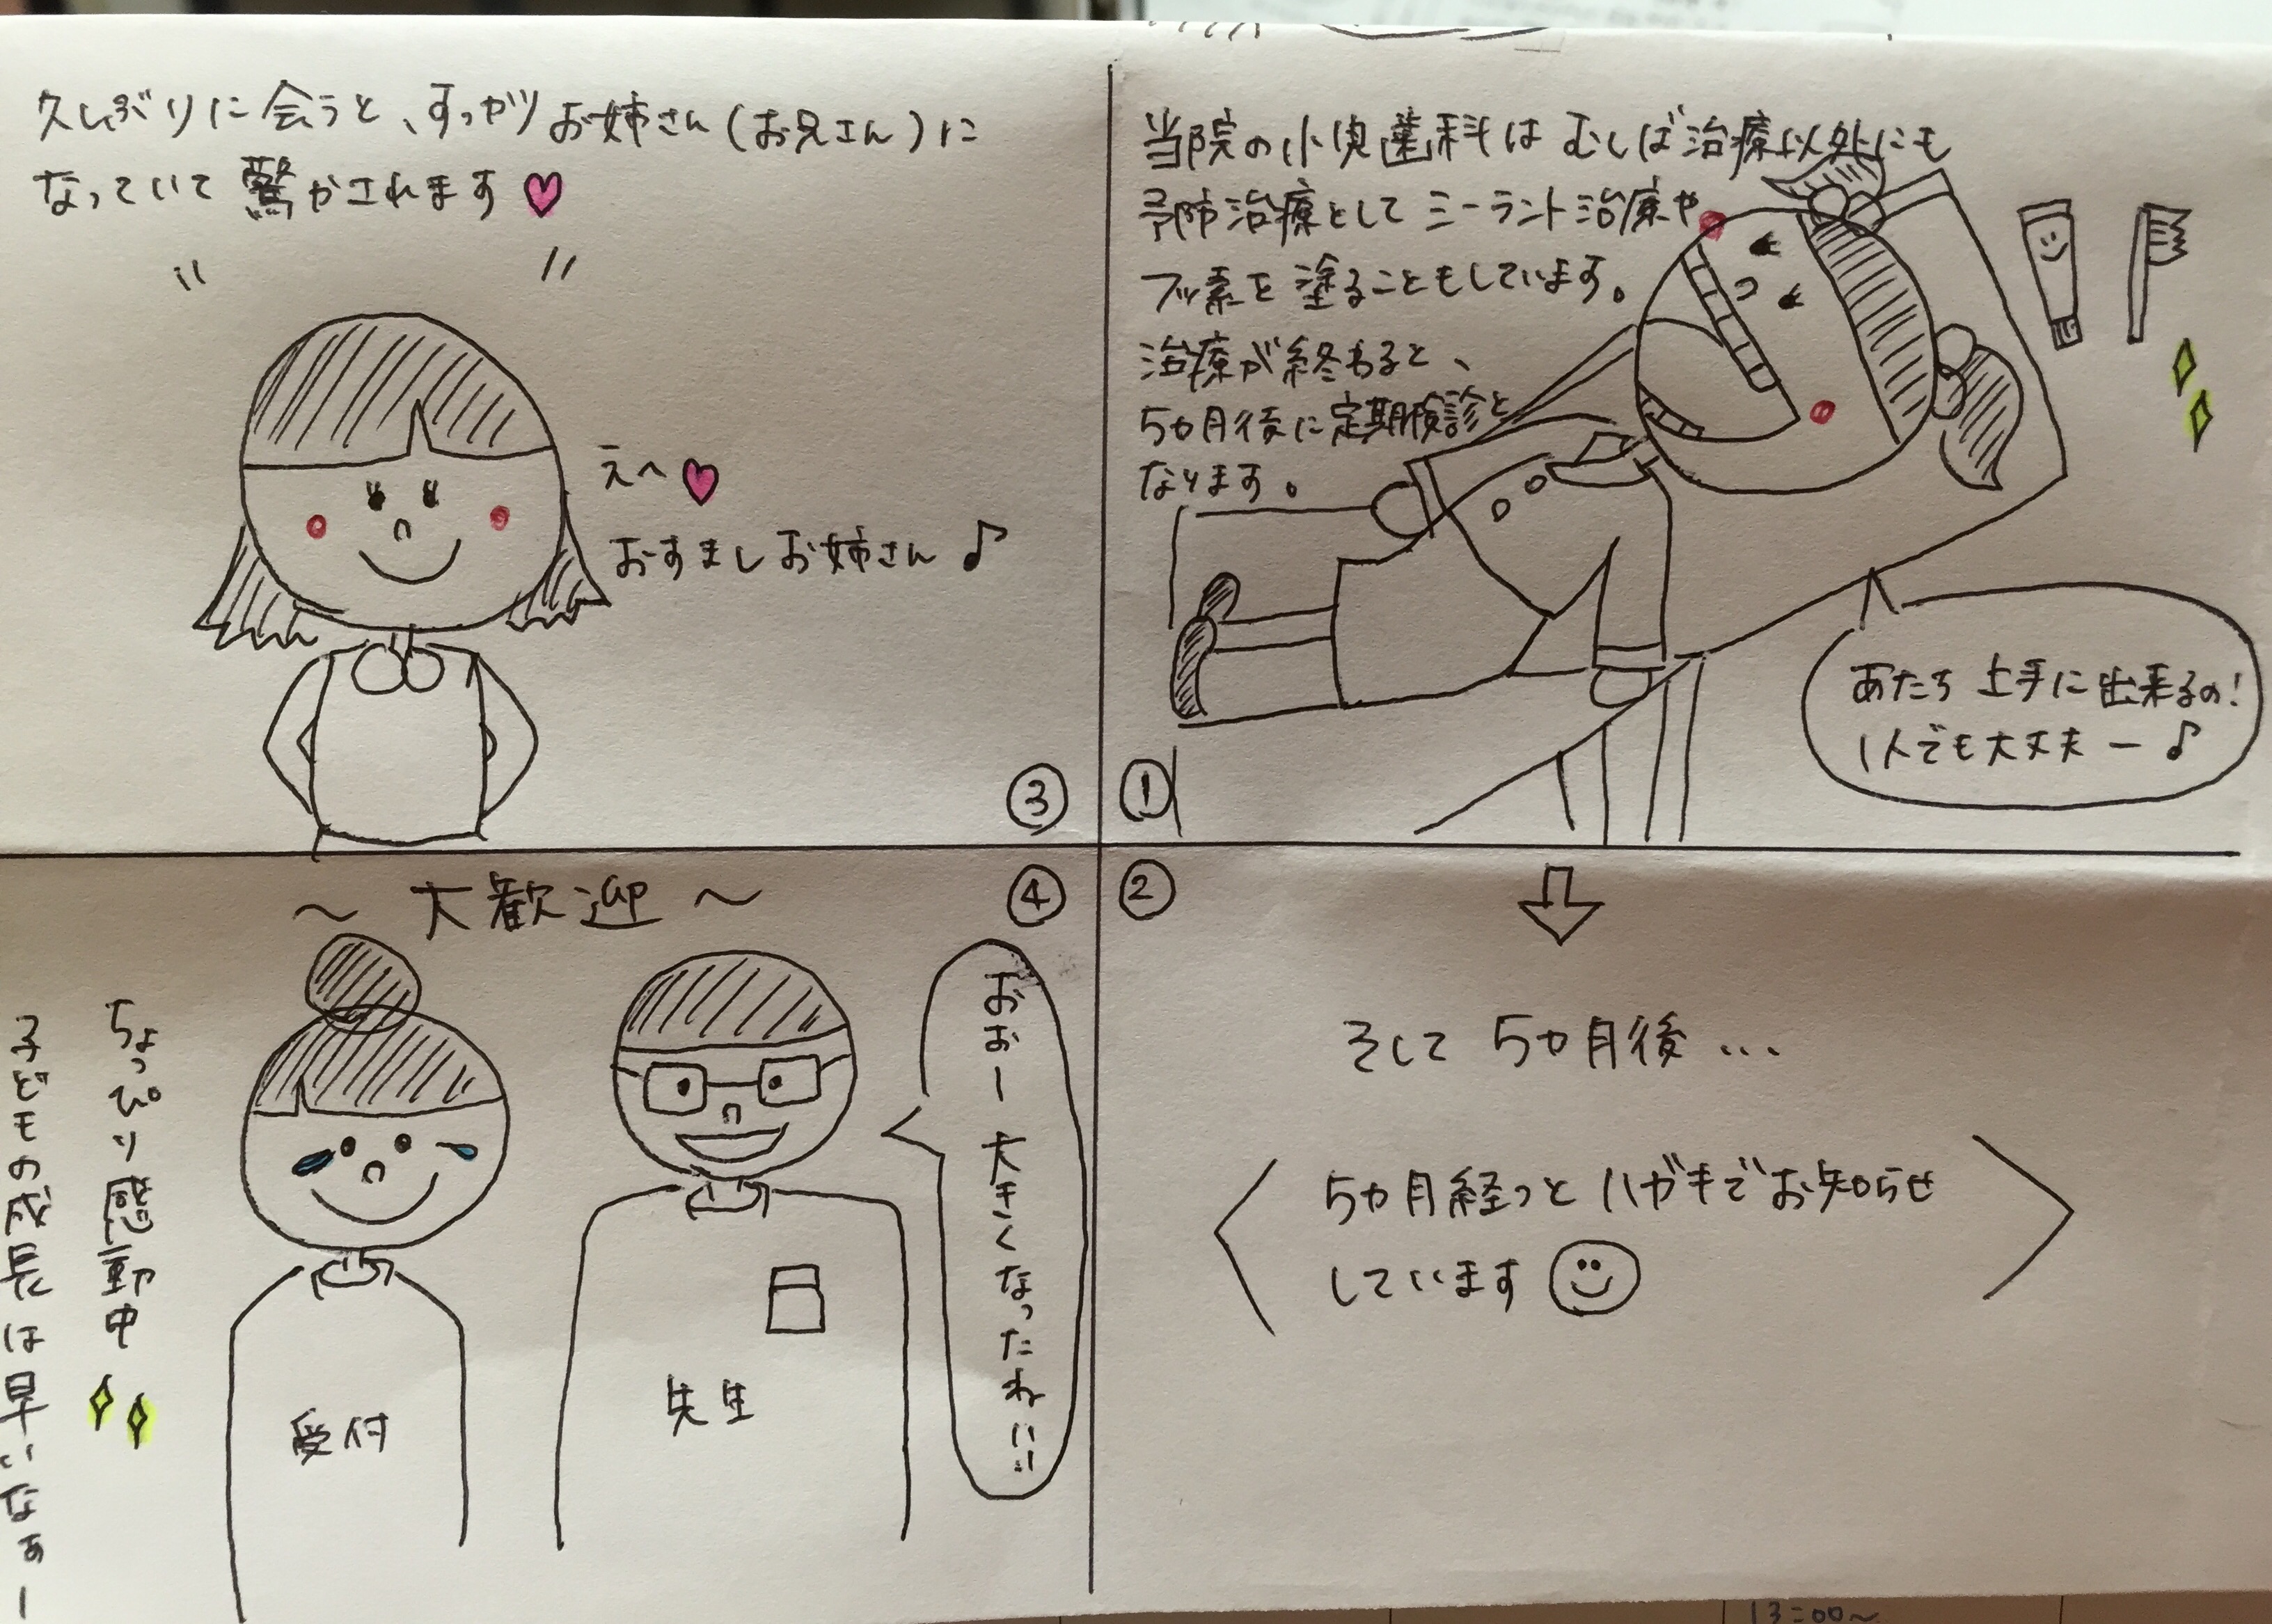 当院の小児歯科は むしば治療以外にも
予防治療として ミーラント治療や
フッ素を 塗ることもしています。
治療が終わると、
5ヵ月後に定期検診と
なります。
あたち 上手に出来るの!
1人でも大丈夫ー♪
①
②
そして 5ヵ月後...
5ヵ月経つと ハガキでお知らせ
しています
久しぶりに会うと、すっかりお姉さん(お兄さん)に
なっていて驚かされます♥
えへ♥
おすましお姉さん♪
③
④
〜 大歓迎 〜
おおー 大きくなったねぃ!!
先生
受付
ちょっぴり感動中
子どもの成長は早いなぁー
13:00〜